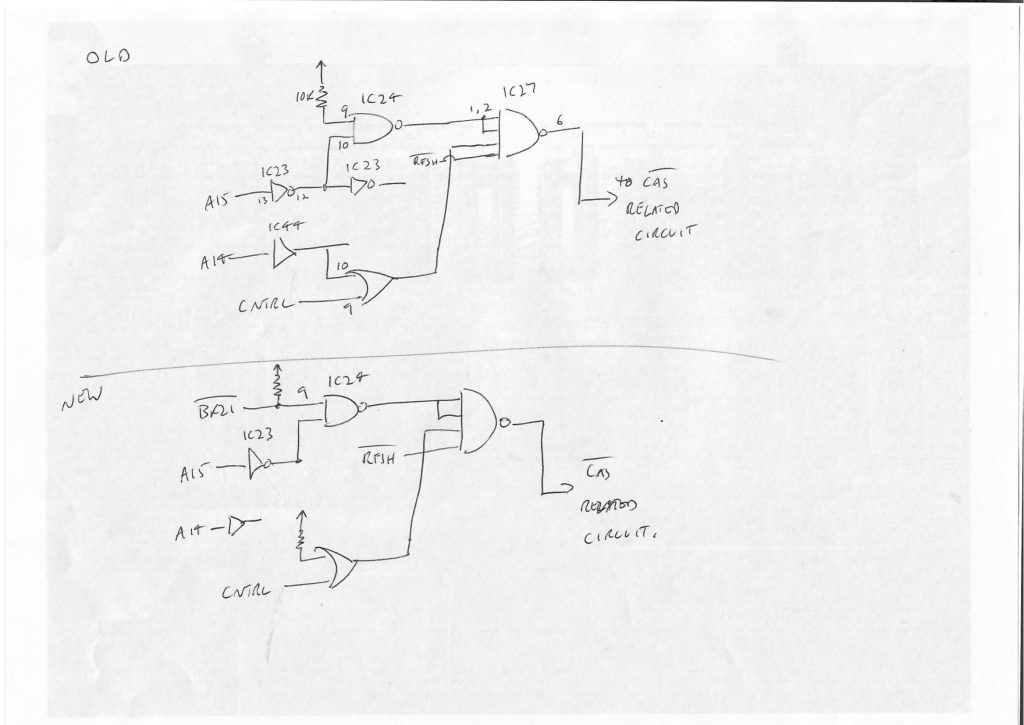 OLD
10K
9
IC24
1,2
IC27
6
10
R̅F̅S̅H̅
IC23
IC23
A15
13
12
TO C̅A̅S̅
RELATED
CIRCUIT
IC44
A14
10
CNTRL
9
NEW
9
IC24
IC23
R̅F̅S̅H̅
A15
C̅A̅S̅
RELATED
CIRCUIT.
A14
CNTRL